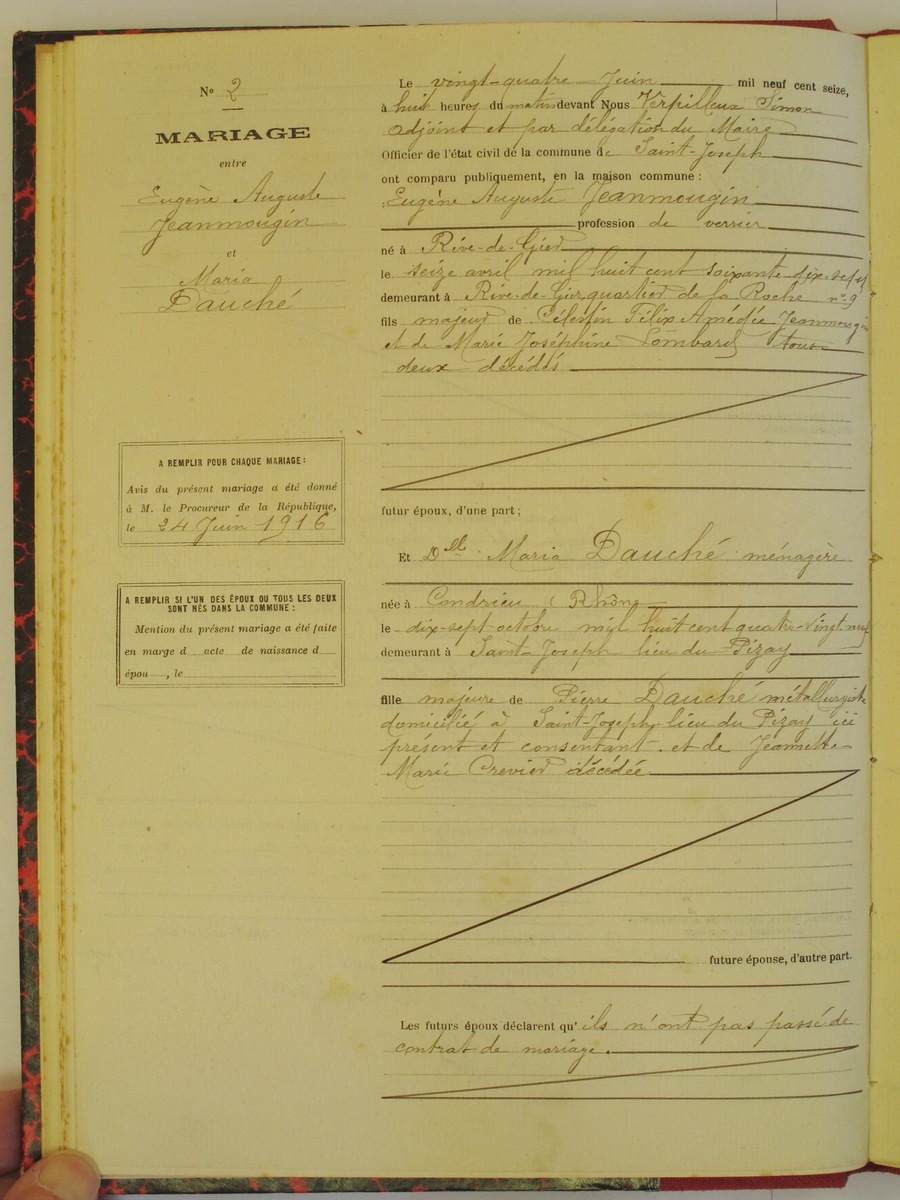 N° 2
MARIAGE
entre
Eugène Auguste
Jeanmougin
et
Maria
Dauché
A REMPLIR POUR CHAQUE MARIAGE :
Avis du présent mariage a été donné
à M. le Procureur de la République,
le 24 Juin 1916
A REMPLIR SI L'UN DES ÉPOUX OU TOUS LES DEUX
SONT NÉS DANS LA COMMUNE :
Mention du présent mariage a été faite
en marge d acte de naissance d
épou , le
Le vingt-quatre Juin mil neuf cent seize,
à huit heures du matin devant Nous Verpilleux Simon
adjoint et par délégation du Maire
Officier de l'état civil de la commune de Saint-Joseph
ont comparu publiquement, en la maison commune :
Eugène Auguste Jeanmougin
profession de verrier
né à Rive-de-Gier
le seize avril mil huit cent soixante-dix-sept
demeurant à Rive-de-Gier, quartier de la Roche n° 9
fils majeur de Célestin Félix Amédée Jeanmougin
et de Marie Joséphine Lombard tous
deux décédés
futur époux, d'une part ;
Et Dlle Maria Dauché ménagère
née à Condrieu (Rhône
le dix-sept octobre mil huit cent quatre-vingt neuf
demeurant à Saint-Joseph lieu du Pizay
fille majeure de Pierre Dauché métallurgiste
domicilié à Saint-Joseph, lieu du Pizay ici
présent et consentant. et de Jeannette
Marie Crevier décédée
future épouse, d'autre part.
Les futurs époux déclarent qu'ils n'ont pas passé de
contrat de mariage.